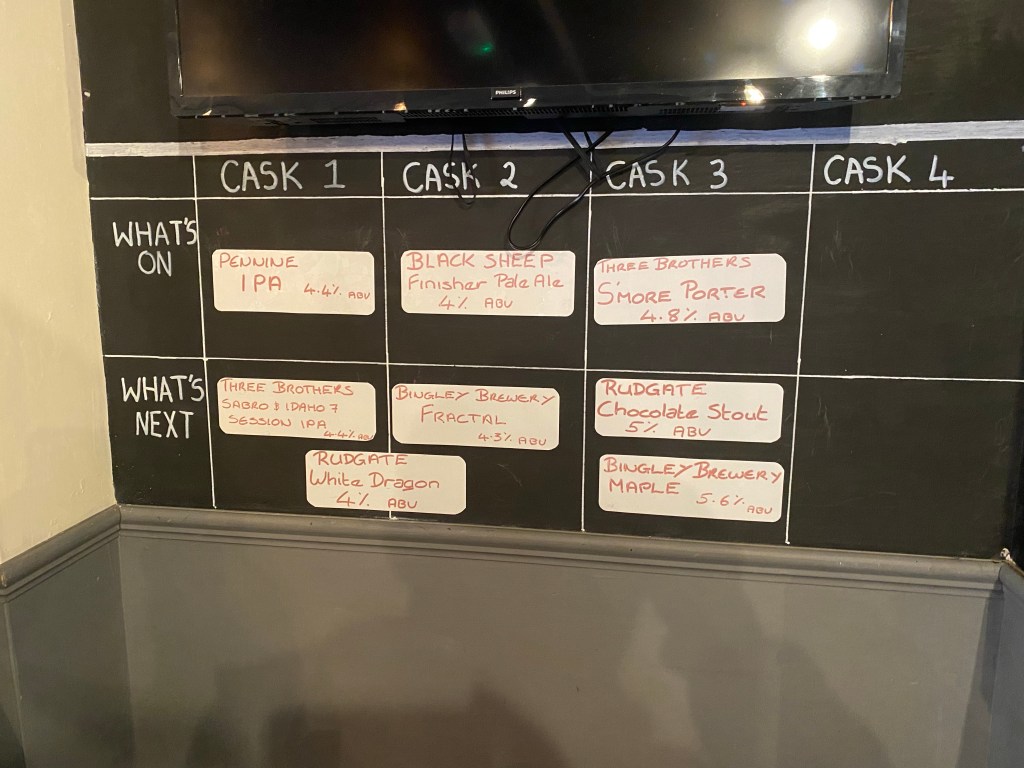 PHILIPS
CASK 1
CASK 2
CASK 3
CASK 4
WHAT'S
ON
PENNINE
IPA 4.4% ABV
BLACK SHEEP
Finisher Pale Ale
4% ABV
THREE BROTHERS
S'MORE PORTER
4.8% ABV
WHAT'S
NEXT
THREE BROTHERS
SABRO & IDAHO 7
SESSION IPA
4.4% ABV
BINGLEY BREWERY
FRACTAL
4.3% ABV
RUDGATE
Chocolate Stout
5% ABV
RUDGATE
White Dragon
4% ABV
BINGLEY BREWERY
MAPLE 5.6%
ABV